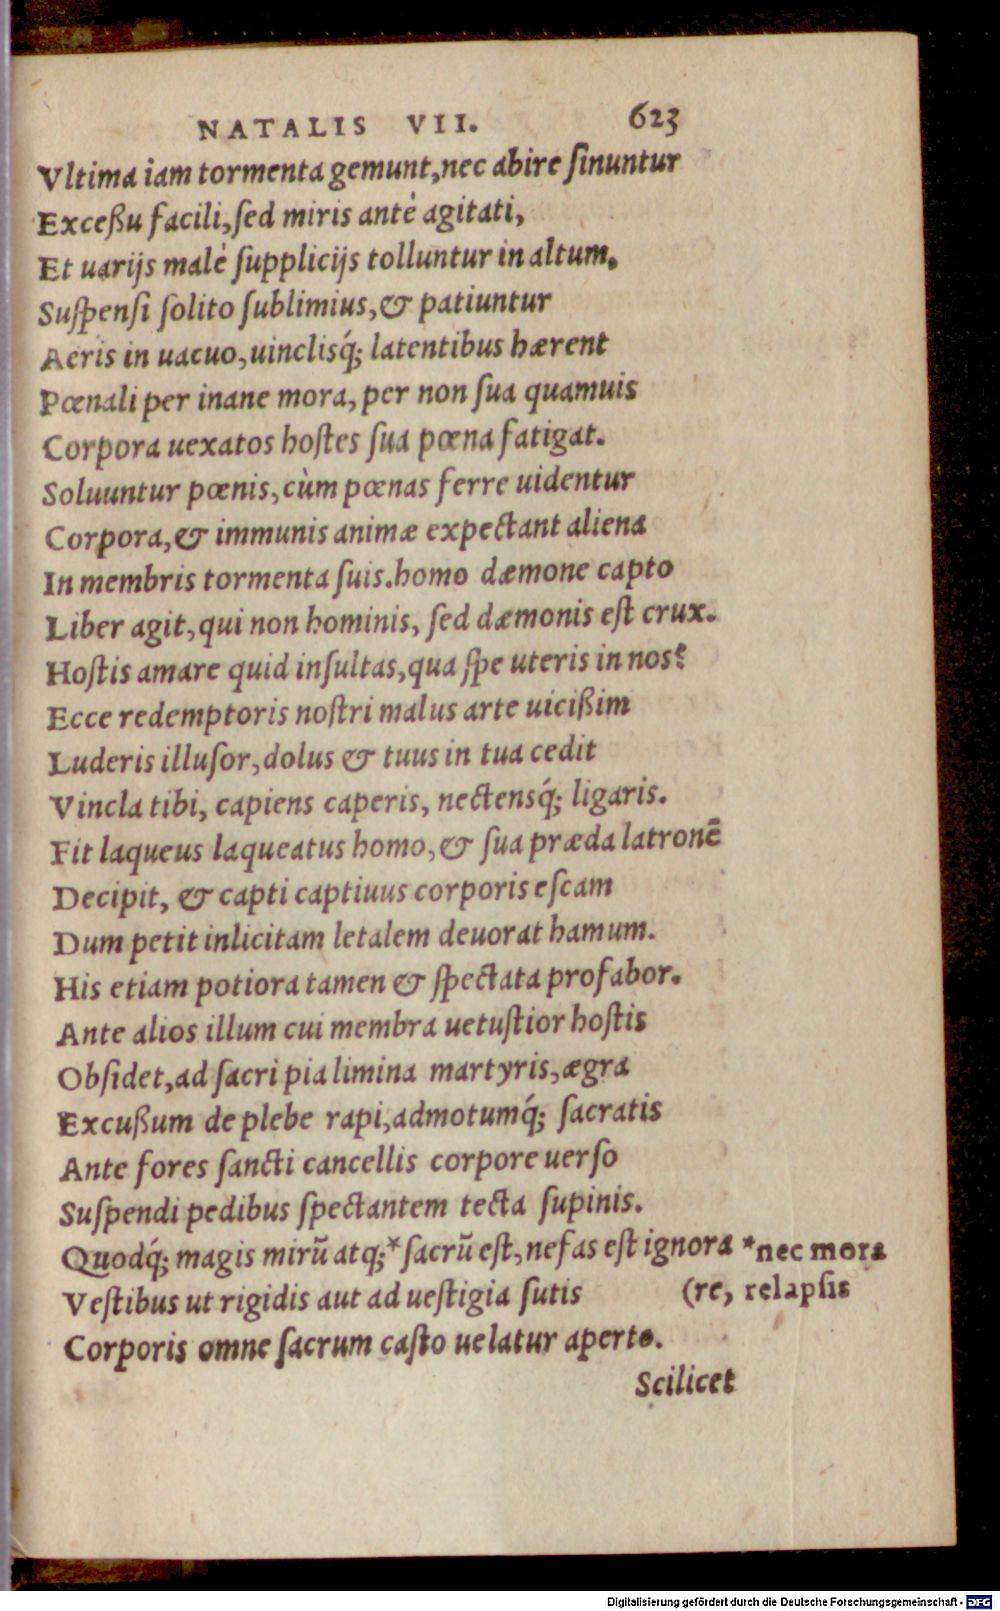 NATALIS VII. 623
Vltima iam tormenta gemunt, nec abire ſinuntur
Exceßu facili, ſed miris antè agitati,
Et uarijs malè ſupplicijs tolluntur in altum.
Suſpenſi ſolito ſublimius, & patiuntur
Aeris in uacuo, uinclisq́; latentibus hærent
Pœnali per inane mora, per non ſua quamuis
Corpora uexatos hoſtes ſua pœna fatigat.
Soluuntur pœnis, cùm pœnas ferre uidentur
Corpora, & immunis animæ expectant aliena
In membris tormenta ſuis. homo dæmone capto
Liber agit, qui non hominis, ſed dæmonis eſt crux.
Hoſtis amare quid inſultas, qua ſpe uteris in nos?
Ecce redemptoris noſtri malus arte uicißim
Luderis illuſor, dolus & tuus in tua cedit
Vincla tibi, capiens caperis, nectensq́; ligaris.
Fit laqueus laqueatus homo, & ſua præda latronē
Decipit, & capti captiuus corporis eſcam
Dum petit inlicitam letalem deuorat hamum.
His etiam potiora tamen & ſpectata profabor.
Ante alios illum cui membra uetuſtior hoſtis
Obſidet, ad ſacri pia limina martyris, ægra
Excußum de plebe rapi, admotumq́; ſacratis
Ante fores ſancti cancellis corpore uerſo
Suſpendi pedibus ſpectantem tecta ſupinis.
Quodq́; magis mirū atq;* ſacrū eſt, nefas eſt ignora *nec mora
Veſtibus ut rigidis aut ad ueſtigia ſutis (re, relapſis
Corporis omne ſacrum caſto uelatur aperto.
Scilicet
Digitalisierung gefördert durch die Deutsche Forschungsgemeinschaft - DFG